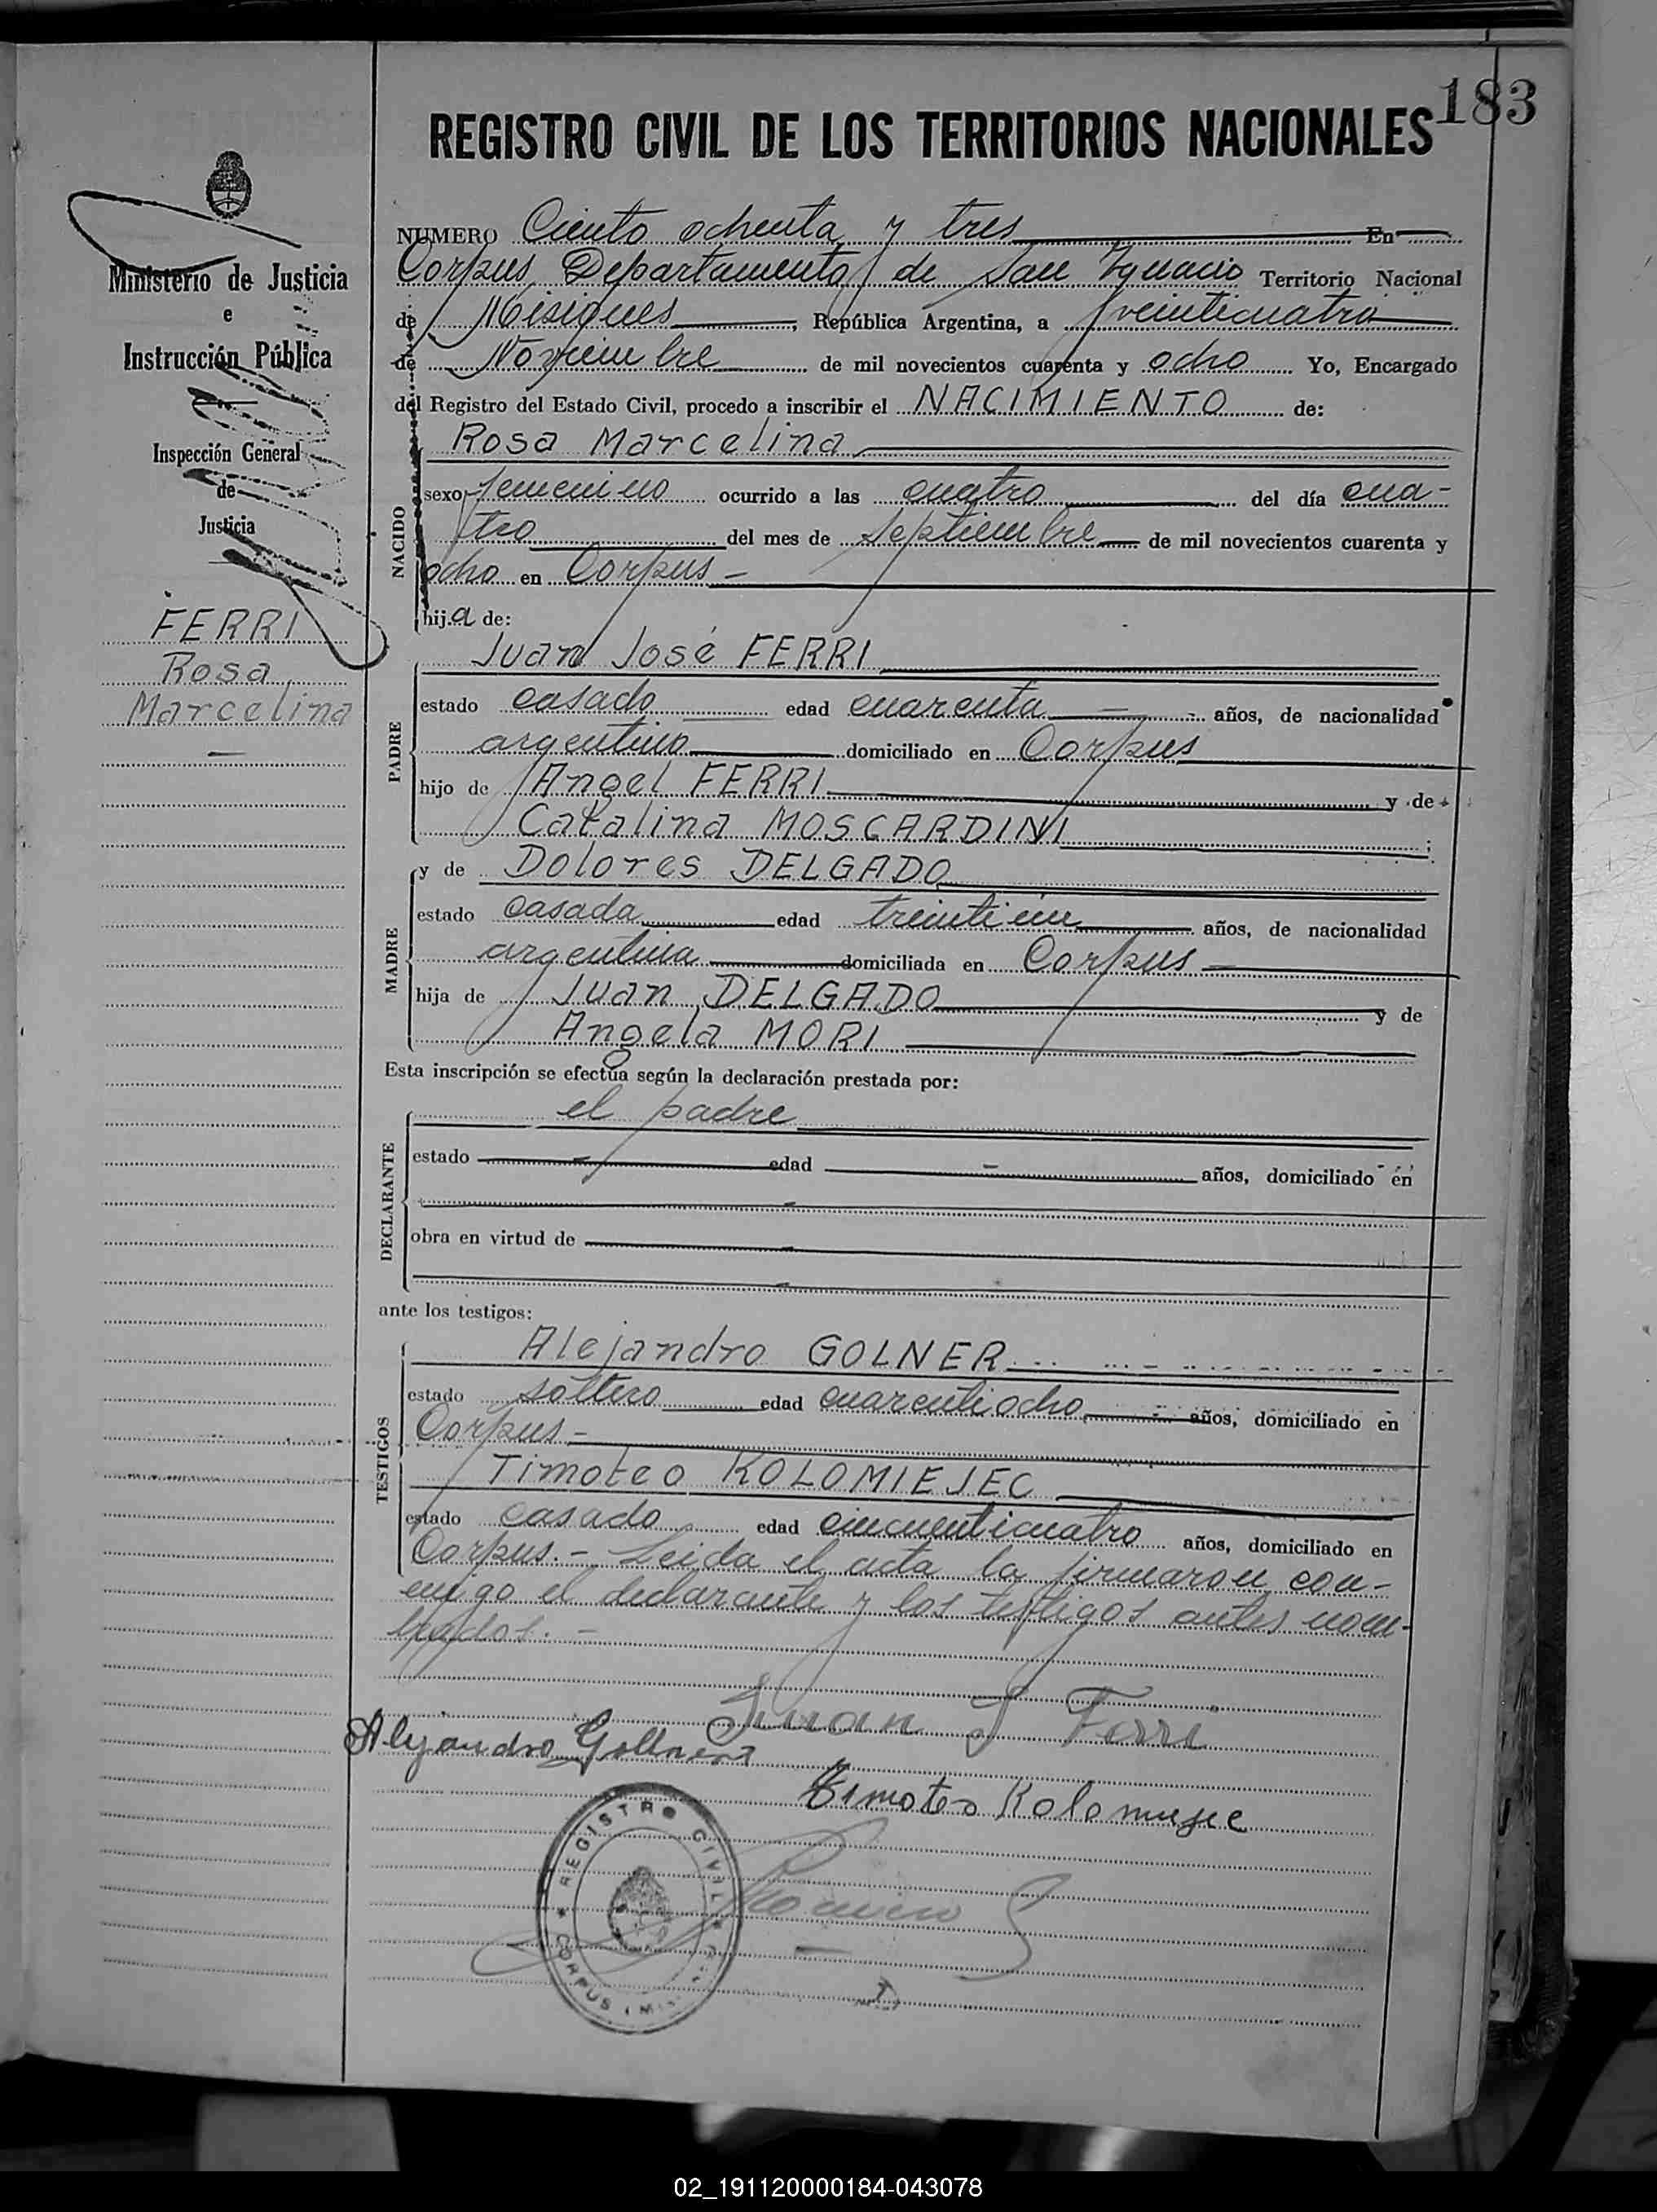 183
REGISTRO CIVIL DE LOS TERRITORIOS NACIONALES
Ministerio de Justicia
e
Instrucción Pública
Inspección General
de
Justicia
FERRI
Rosa
Marcelina
NUMERO Ciento ochenta y tres En
Corpus Departamento de San Ygnacio Territorio Nacional
de Misiones, República Argentina, a veinticuatro
de Noviembre de mil novecientos cuarenta y ocho Yo, Encargado
del Registro del Estado Civil, procedo a inscribir el NACIMIENTO de:
NACIDO
Rosa Marcelina
sexo femenino ocurrido a las cuatro del día cua-
tro del mes de septiembre de mil novecientos cuarenta y
ocho en Corpus -
hija de:
PADRE
Juan José FERRI
estado casado edad cuarenta años, de nacionalidad
argentino domiciliado en Corpus
hijo de Angel FERRI y de
Catalina MOSCARDINI;
MADRE
y de Dolores DELGADO
estado casada edad treintiun años, de nacionalidad
argentina domiciliada en Corpus -
hija de Juan DELGADO y de
Angela MORI
Esta inscripción se efectúa según la declaración prestada por:
DECLARANTE
el padre
estado edad años, domiciliado en
obra en virtud de
ante los testigos:
TESTIGOS
Alejandro GOLNER
estado soltero edad cuarentiocho años, domiciliado en
Corpus -
Timoteo KOLOMIEJEC
estado casado edad cincuenticuatro años, domiciliado en
Corpus. - Leida el acta la firmaron con-
migo el declarante y los testigos antes nom-
brados. -
Juan J Ferri
Alejandro Gollner
Timoteo Kolomyjec
REGISTRO CIVIL
CORPUS
02_191120000184-043078